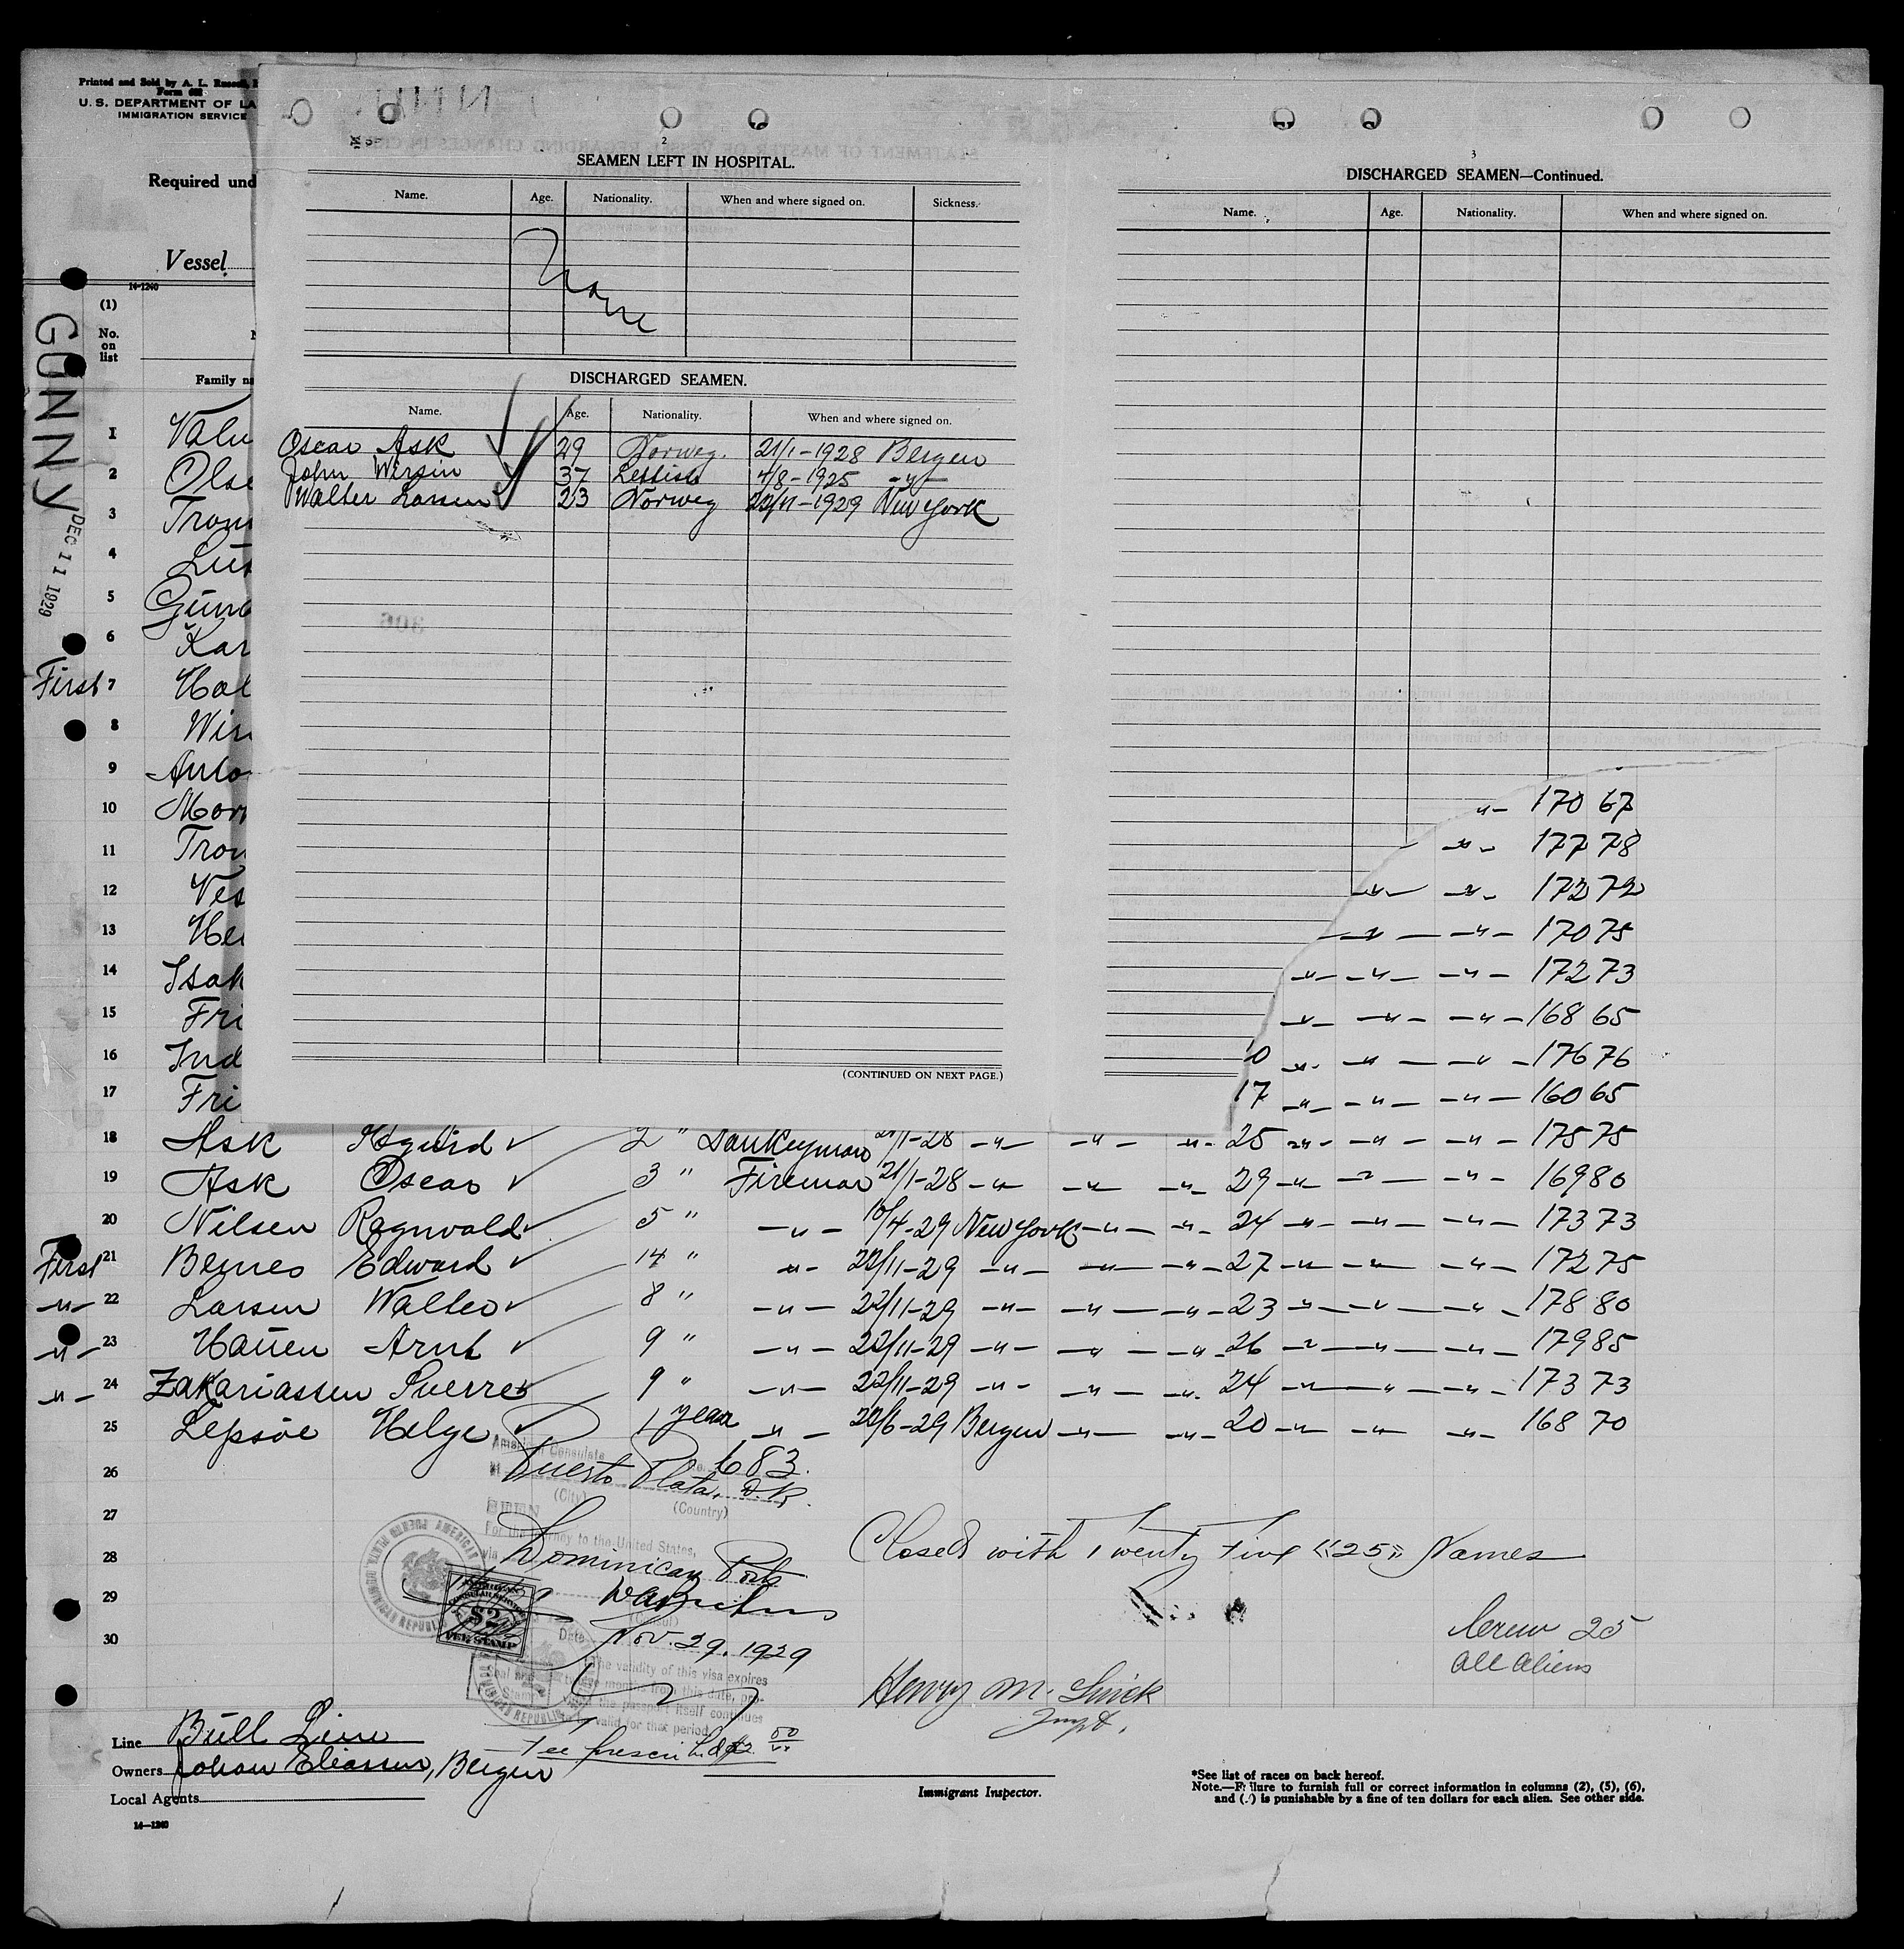 Printed and Sold by A. L.
U. S. DEPARTMENT OF LA
IMMIGRATION SERVICE
Required und
Vessel
14-1240
(1)
No.
on
list
Family na
GUNNY
DEC 11 1929
2
SEAMEN LEFT IN HOSPITAL.
Name. Age. Nationality. When and where signed on. Sickness.
None
DISCHARGED SEAMEN.
Name. Age. Nationality. When and where signed on.
Oscar Ask 29 Norweg. 21/1-1928 Bergen
John Wirsin 37 Lettish 4/8-1925 -"-
Walter Larsen 23 Norweg 22/11-1929 New York
(CONTINUED ON NEXT PAGE.)
3
DISCHARGED SEAMEN—Continued.
Name. Age. Nationality. When and where signed on.
1 Valu
2 Olse
3 Trom
4
5
6 Kar
First 7 Hal
8 Wirs
9 Anto
10 Mor -"- 170 67
11 Tron -"- 177 78
12 Ves -"- -"- 172 72
13 Hei -"- -"- 170 75
14 Isak -"- -"- -"- 172 73
15 Fri -"- -"- -"- 168 65
16 Ind 0 -"- -"- -"- 176 76
17 Fri 17 -"- -"- -"- 160 65
18 Ask 2 " Donkeyman 21/1-28 -"- -"- -"- 25 -"- -"- -"- 175 75
19 Ask Oscar 3 " Fireman 21/1-28 -"- -"- -"- 29 -"- -"- -"- 169 80
20 Nilsen Ragnvald 5 " -"- 10/4-29 New York -"- -"- 24 -"- -"- -"- 173 73
First 21 Bernes Edward 14 " -"- 22/11-29 -"- -"- -"- 27 -"- -"- -"- 172 75
-"- 22 Larsen Walter 8 " -"- 22/11-29 -"- -"- -"- 23 -"- -"- -"- 178 80
-"- 23 Hauen Arnt 9 " -"- 22/11-29 -"- -"- -"- 26 -"- -"- -"- 179 85
-"- 24 Zakariassen Sverre 9 " -"- 22/11-29 -"- -"- -"- 24 -"- -"- -"- 173 73
25 Lepsöe Helge 1 year -"- 22/6-29 Bergen -"- -"- 20 -"- -"- -"- 168 70
26
27
28
29
30
American Consulate
No. 683.
Puerto Plata, D.R.
(City) (Country)
SEEN
For the journey to the United States,
via Dominican Ports
(Consul)
Date Nov. 29, 1929
The validity of this visa expires
twelve months from this date, pro-
vided the passport itself continues
to be valid for that period.
Fee prescribed $2.00
$2
FEE STAMP
Closed with Twenty Five «25» Names
Crew 25
all aliens
Henry M.
Inspt.
Line Bull Line
Owners Johan Eliassen, Bergen
Local Agents
Immigrant Inspector.
*See list of races on back hereof.
Note.—Failure to furnish full or correct information in columns (2), (5), (6),
and (7) is punishable by a fine of ten dollars for each alien. See other side.
14—1240